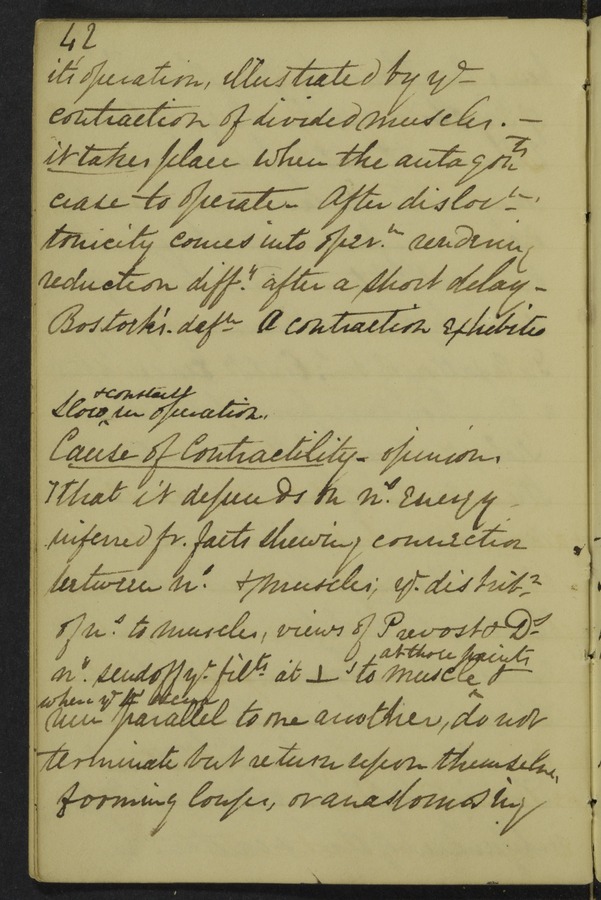 42
it's operation, illustrated by ye
contraction of divided muscles. —
it takes place when the antagonts
cease to operate. After disloctn.
tonicity comes into opern. rendering
reduction difft. after a short delay –
Bostock's. defn. A contraction exhibited
+ constant
slow in operation.
Cause of Contractility – opinion.
1 that it depends on ns. Energy
inferred fr. facts shewing connection
between ns. & muscles; ye. distribn.
of ns. to muscles, views of Prevost & Ds
ns. send off yr. filts. at ⊥s to muscle
at those points
when ye
run parallel to one another, do not
terminate but return upon themselves,
forming loops, or anastomosing